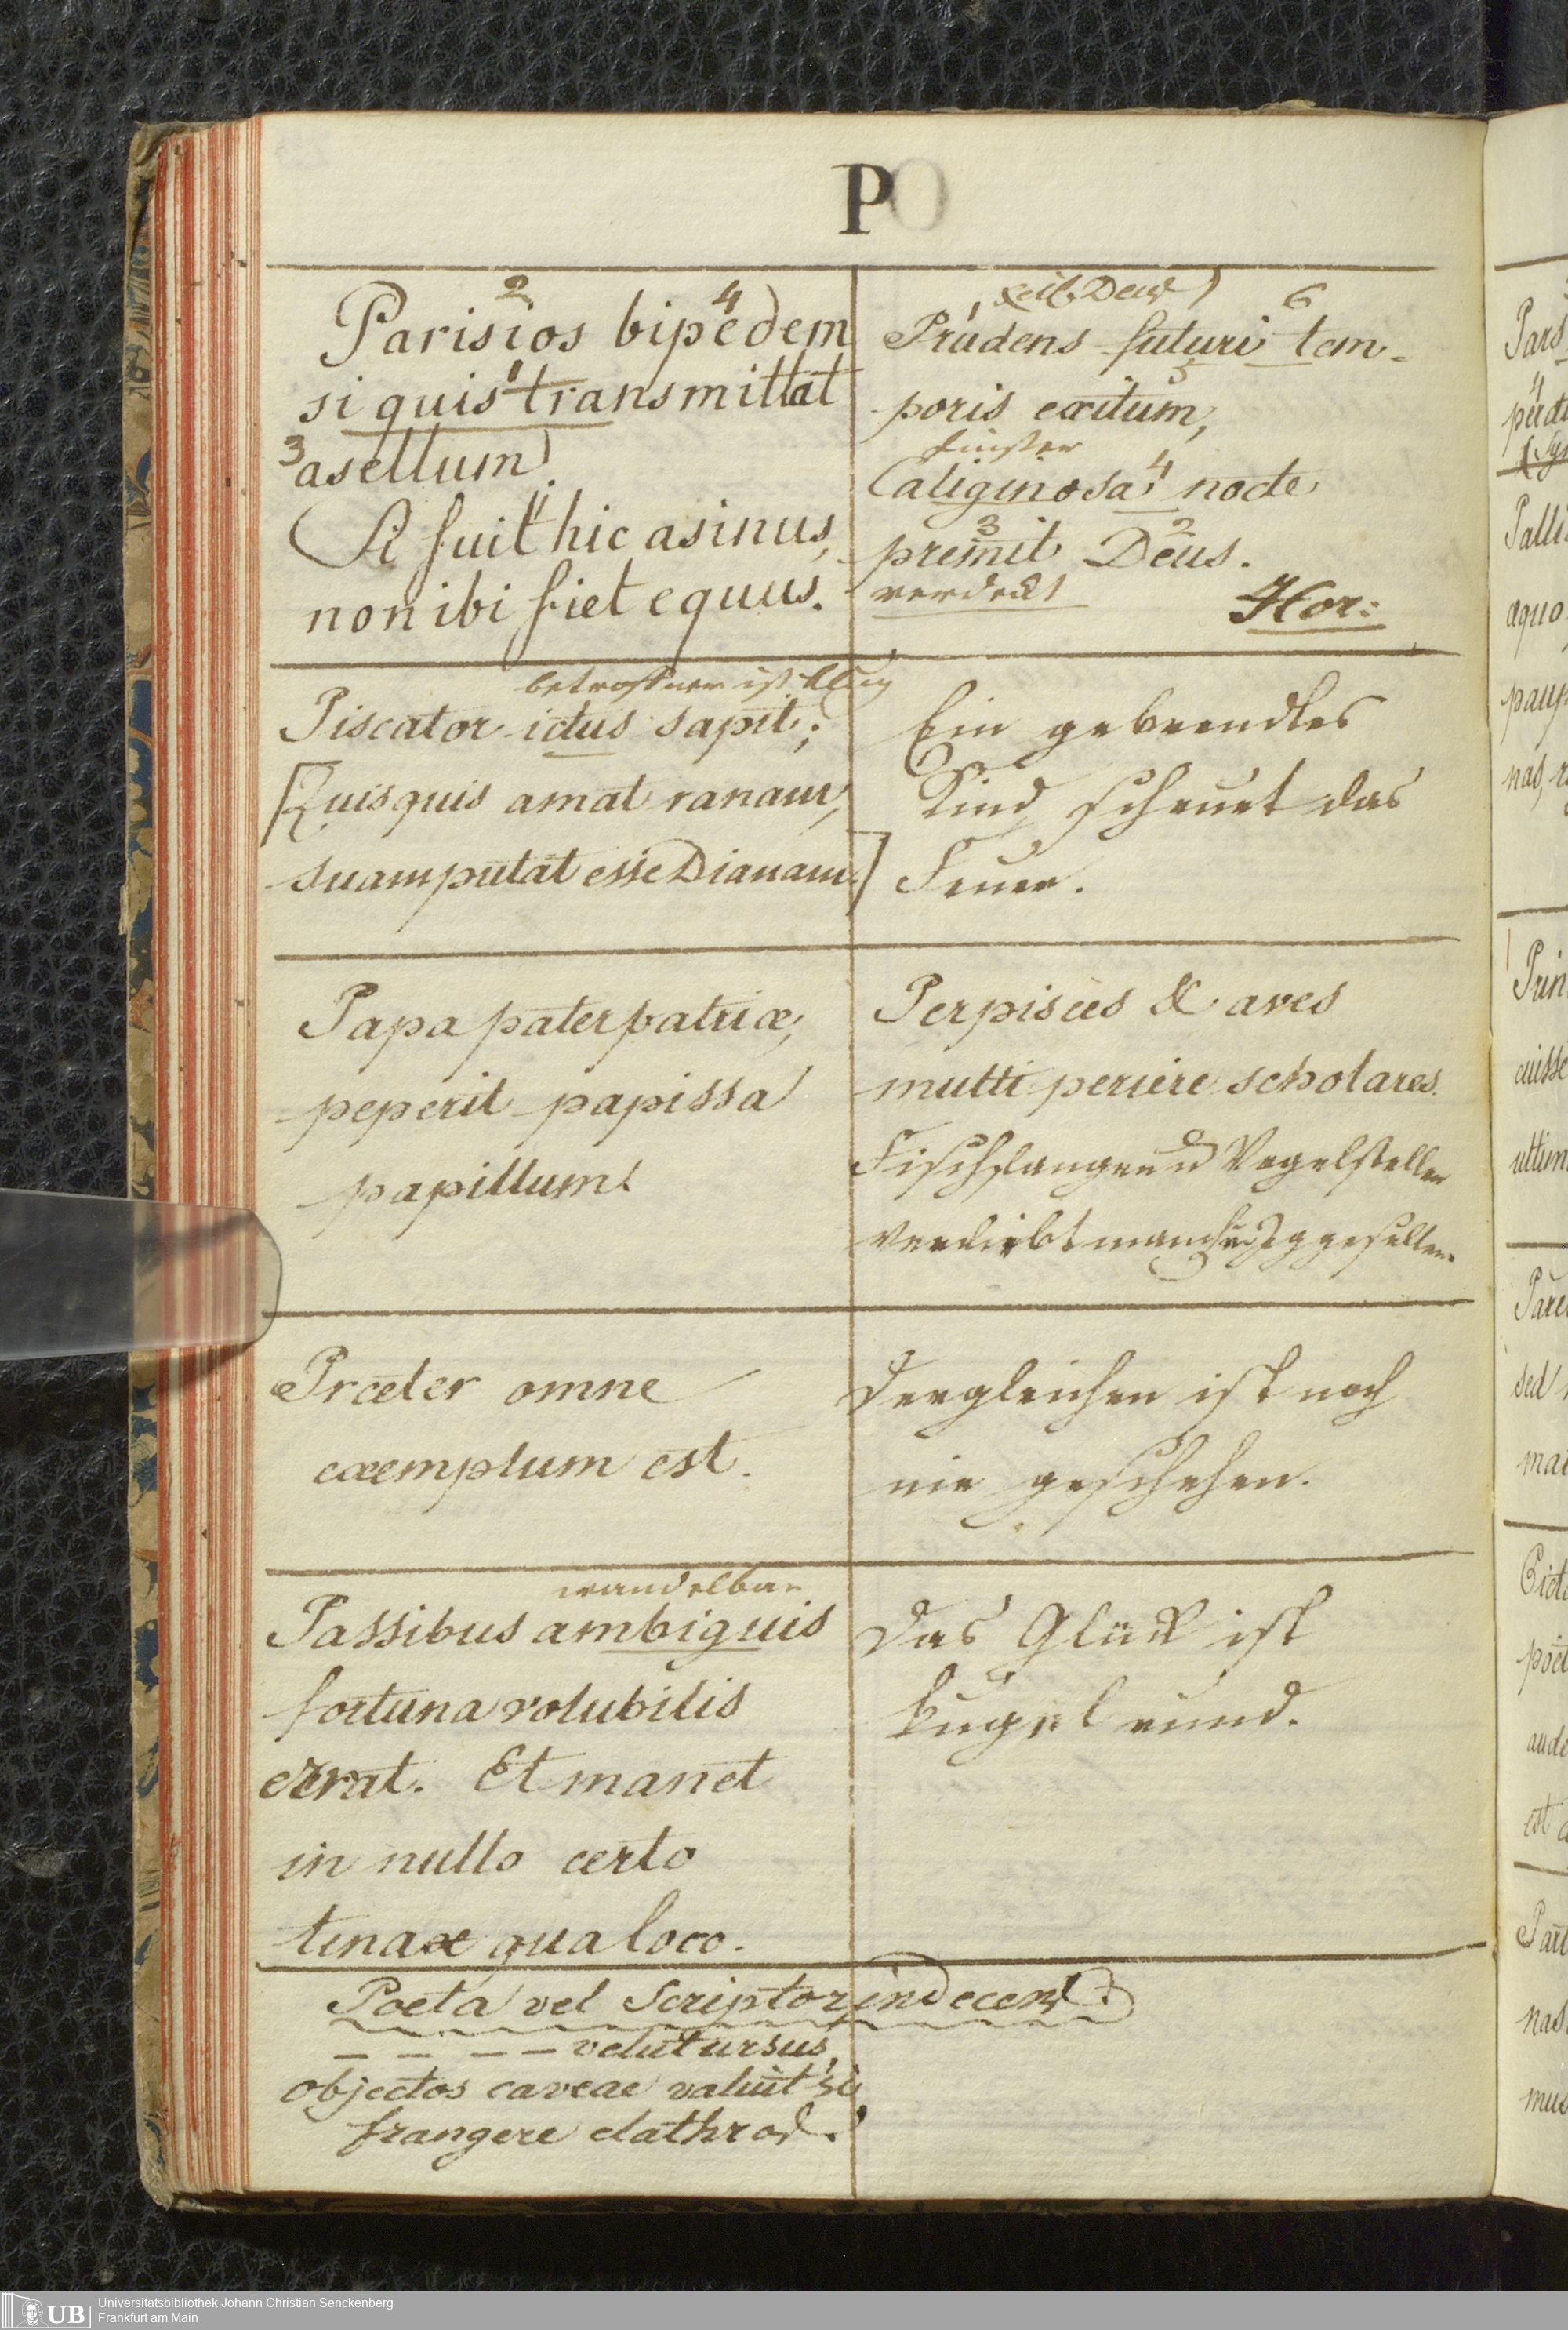 P
Parisios bipedem
si quis transmittat
asellum
Si fuit hic asinus,
non ibi fiet equus.
scil. Deus
Prudens futuri tem-
poris exitum,
finster
Caliginosa nocte
premit Deus.
verdekt
Hor:
betroffener ist klug
Piscator ictus sapit;
[Quisquis amat ranam,
suam putat esse Dianam.]
Ein gebrendtes
Kind scheuet das
Feuer.
Papa pater patriæ,
peperit papissa
papillum
Per pisces & aves
multi periere scholares.
Fischfangen u Vogelstellen
Verdirbt manchen
Præter omne
exemplum est.
Dergleichen ist noch
nie geschehen.
wandelbar
Passibus ambiguis
fortuna volubilis
errat. Et manet
in nullo certo
tenax qua loco.
Das Glük ist
kugel rund.
Poeta vel Scriptor indecens.
_ _ _ _ velut ursus,
objectos caveae valuit si
frangere clathros.
UB
Universitätsbibliothek Johann Christian Senckenberg
Frankfurt am Main